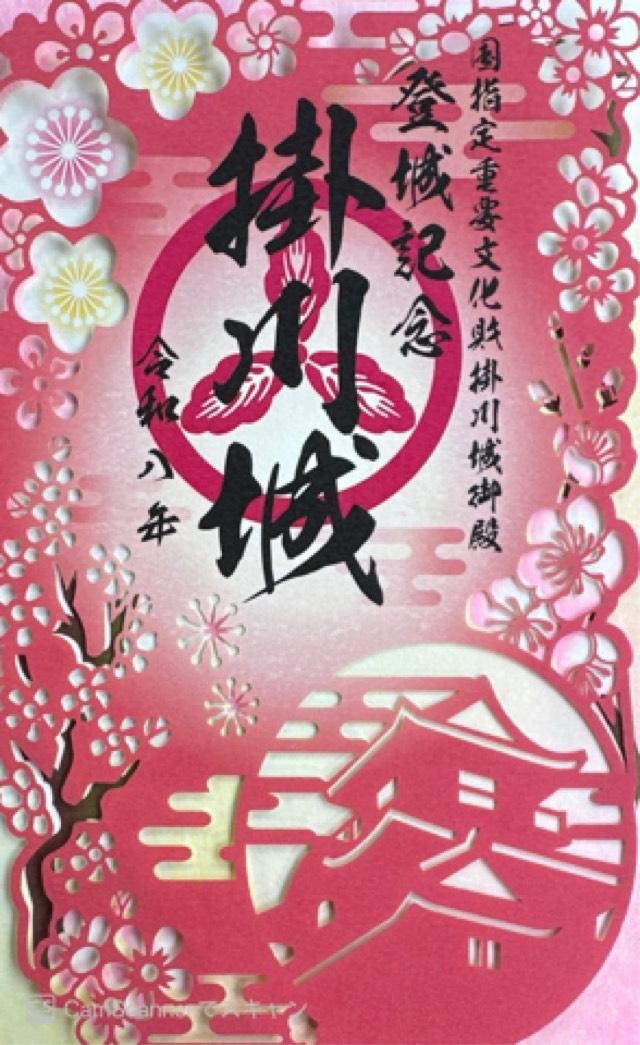 国指定重要文化財掛川城御殿
登城記念
掛川城
令和八年
CamScannerでスキャン